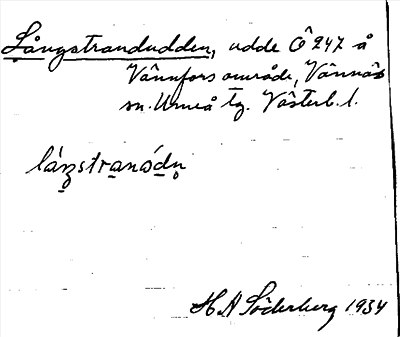 Långstrandudden, udde Ö 247 å
Vännfors område, Vännäs
sn. Umeå tg. Västerb. l.
láŋstranódn̥
H A Söderberg 1934